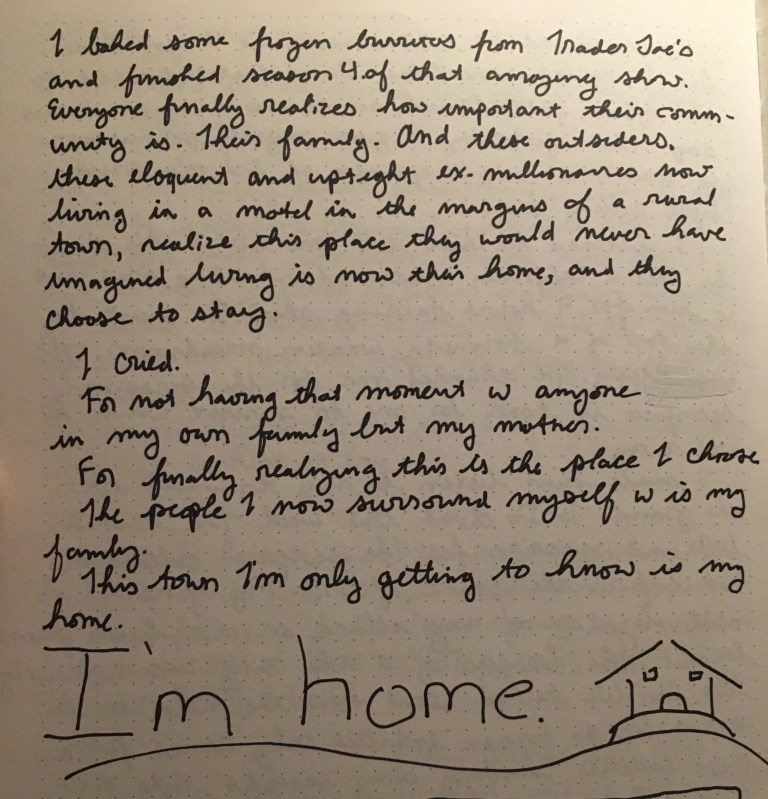 I baked some frozen burritos from Trader Joe's
and finished season 4 of that amazing show.
Everyone finally realizes how important their comm-
unity is. Their family. And these outsiders,
these eloquent and uptight ex-millionaires now
living in a motel in the margins of a rural
town, realize this place they would never have
imagined living is now their home, and they
choose to stay.
I cried.
For not having that moment w anyone
in my own family but my mother.
For finally realizing this is the place I choose
The people I now surround myself w is my
family.
This town I'm only getting to know is my
home.
I'm home.